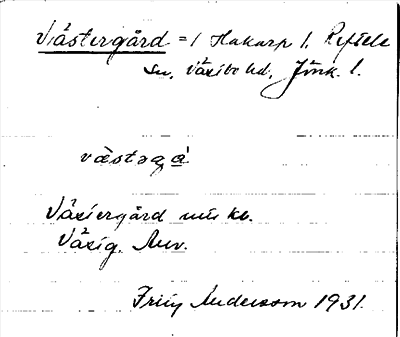 Västergård = 1 Hakarp 1, Reftele
sn, Västbo hd, Jönk. l.
västəgạ
Västergård min kb.
Västg. Anv.
Frity Andersson 1931.